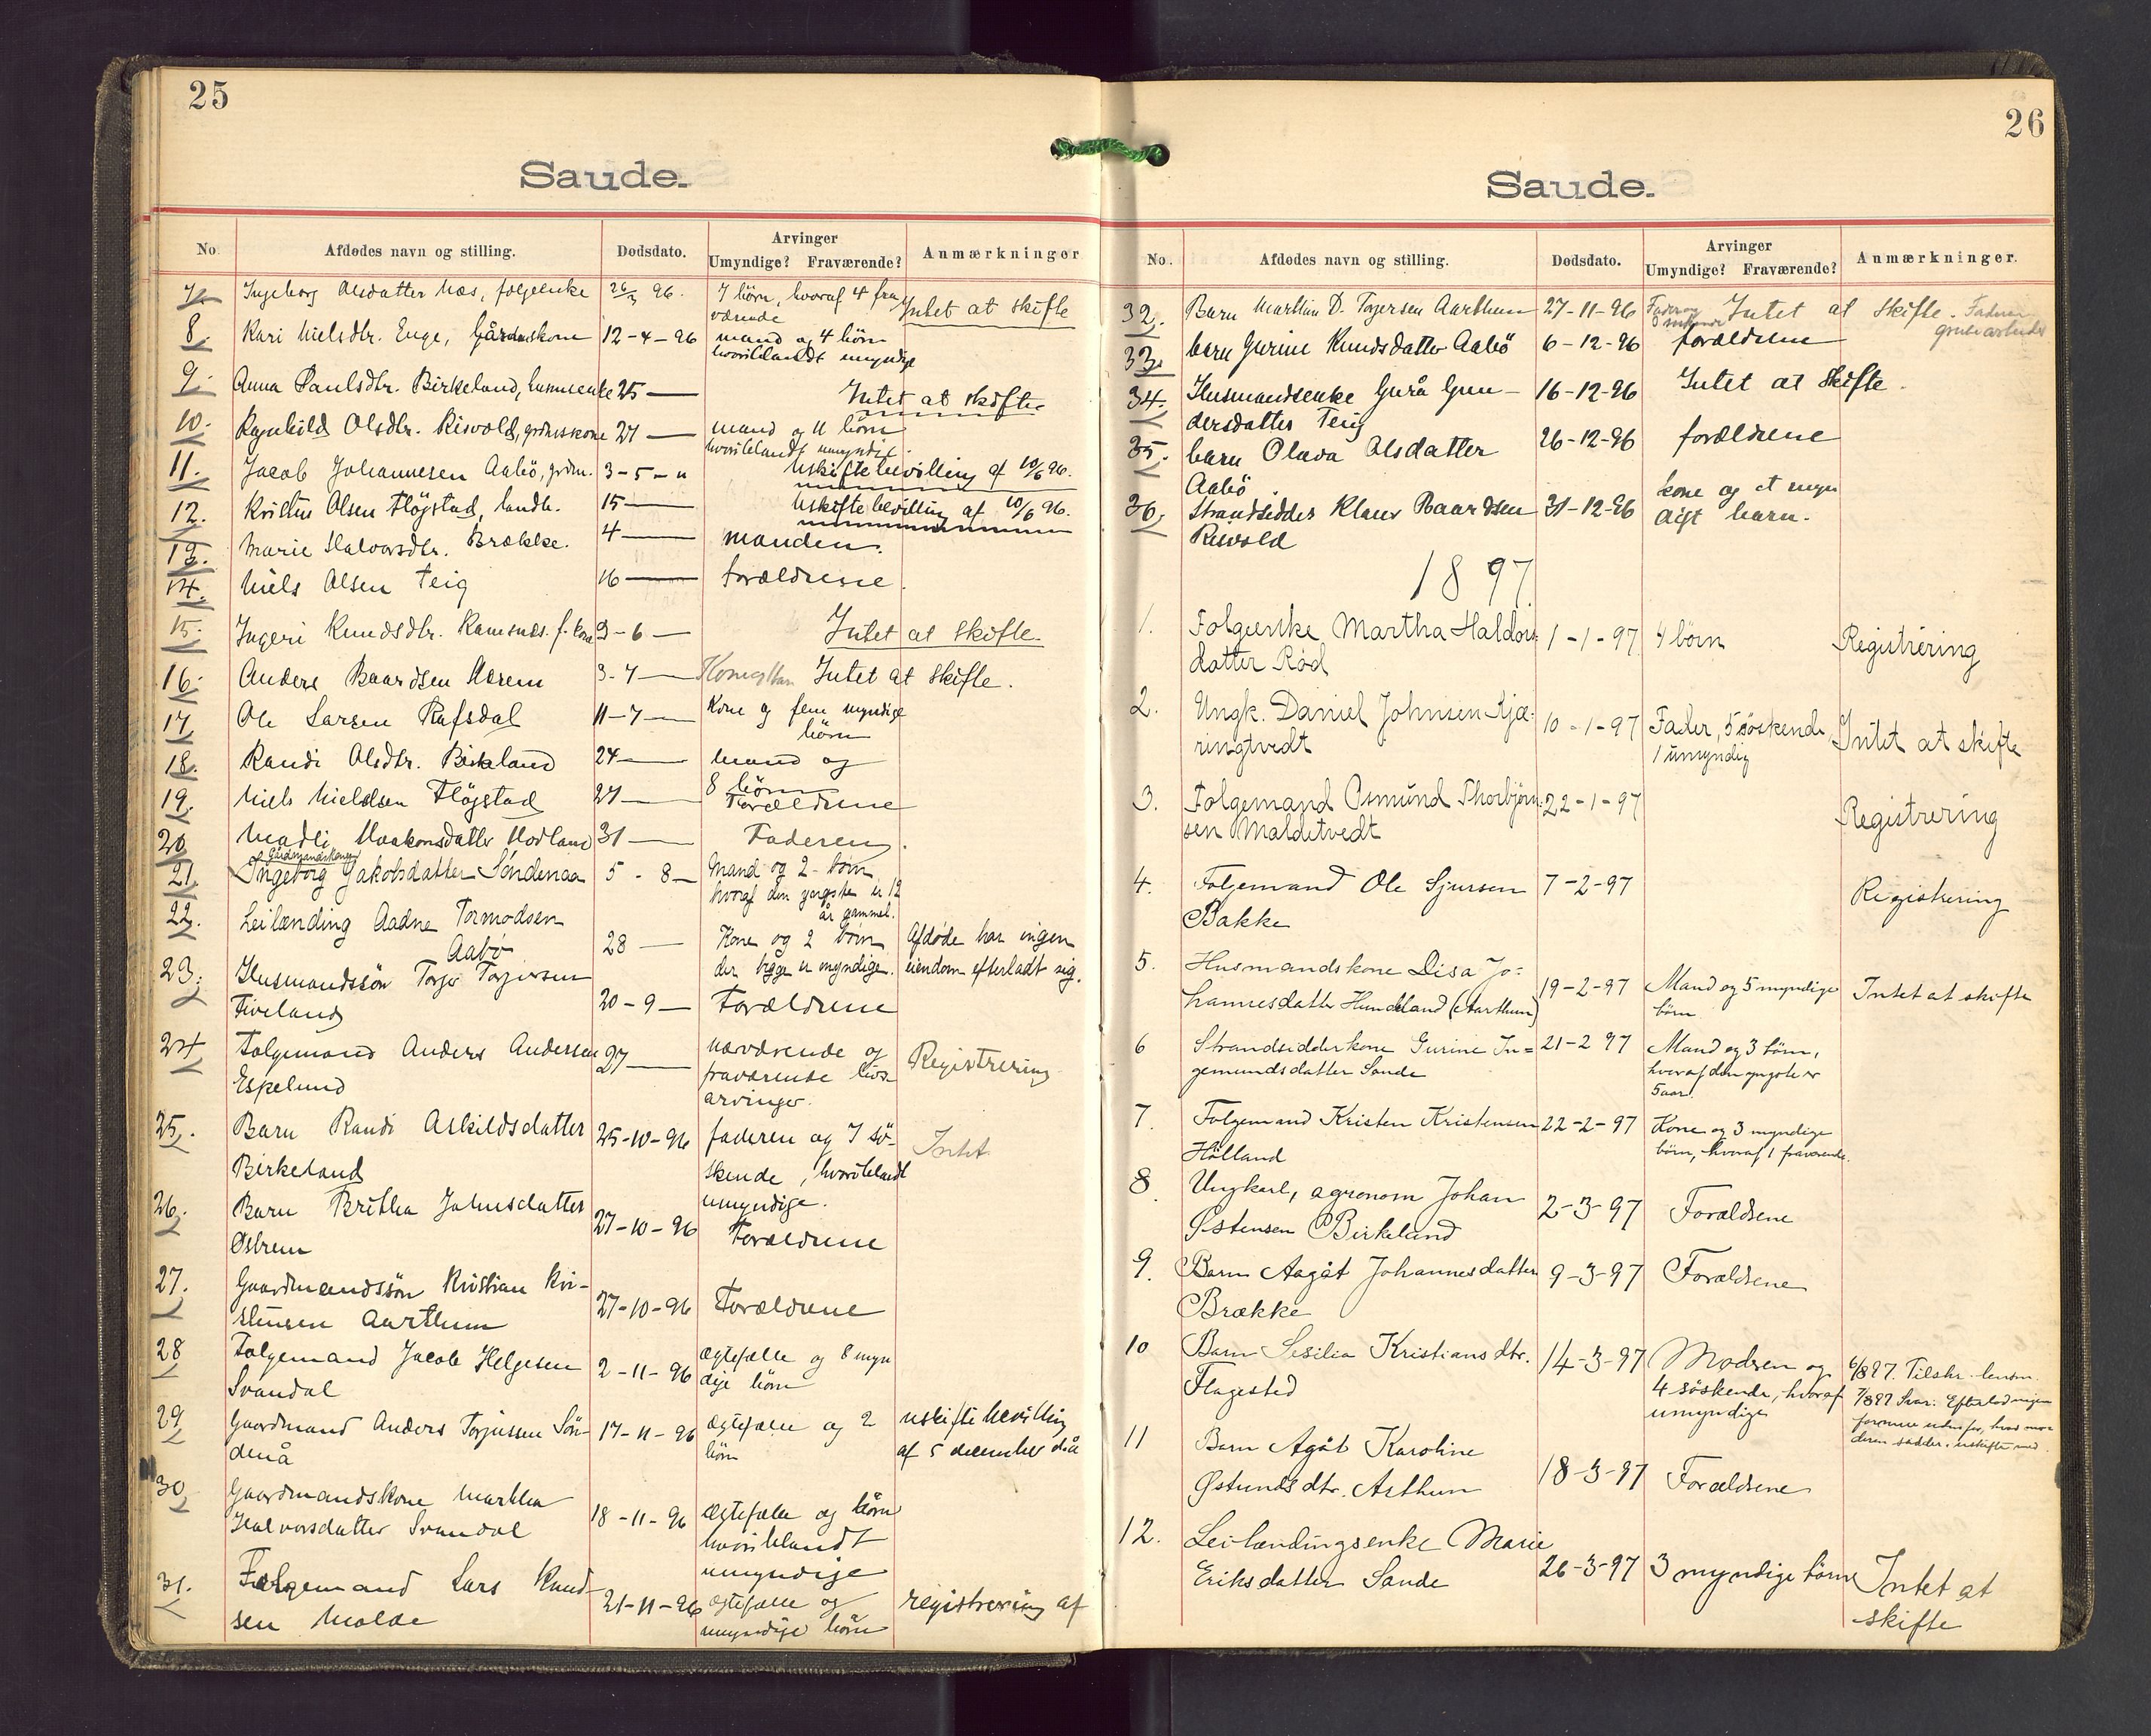 25
Saude.
No.
Afdødes navn og stilling.
Dødsdato.
Arvinger
Umyndige? Fraværende?
Anmærkninger
7. Ingeborg Olsdatter Næs, folgeenke 26/3 96. 7 børn, hvoraf 4 fra
værende Intet at skifte
8. Kari Nielsdtr. Enge, Gårdmskone 12-4-96 mand og 4 börn
hvoriblandt myndige
9. Anna Paulsdtr. Birkeland, husmenke 25 — Intet at skifte
10. Ragnhild Olsdtr. Risvold, grdmskone 27 — mand og 11 börn
hvoriblandt umyndige
11. Jacob Johannesen Aabö, grdm. 3-5-" Uskiftebevilling af 10/6 96.
12. Kristen Olsen Flögstad, landh. 15 — Uskiftebevilling af 10/6 96.
13. Marie Halvorsdtr. Brække. 4 — manden.
14. Niels Olsen Teig 16 — forældrene.
15. Ingeri Knudsdtr. Ramsnes. f. kone 3-6 — Intet at skifte.
16. Anders Baardsen Hærem 3-7 — Intet at skifte.
17. Ole Larsen Rafsdal 11-7 — Kone og fem myndige
börn
18. Randi Olsdtr. Birkeland 24 — Mand og
8 börn
19. Niels Nielsen Flögstad 27 — Forældrene
20. Madli Haakonsdatter Hovland 31 — Faderen.
Gårdmandskone
21. Ingeborg Jakobsdatter Söndenaa 5-8 — Mand og 2 börn
hvoraf den yngste er 12
år gammel.
22. Leilænding Aadne Tormodsen
Aabö 28 — Kone og 2 börn Afdøde har ingen
der begge er myndige. eiendom efterladt sig.
23. Husmandssön Torger Torgersen
Tveland 20-9 — Forældrene
24. Folgemand Anders Andersen 27 — nærværende og Registrering
Espelund fraværende livs-
arvinger.
25. Barn Randi Askildsdatter 25-10-96 faderen og 7 sö- Intet
Birkeland skende, hvoriblandt
umyndige.
26. Barn Britha Johnsdatter
Østrem 27-10-96 Forældrene
27. Gaardmandssön Kristian Kri-
stensen Aarthun 27-10-96 Forældrene
28. Folgemand Jacob Helgesen 2-11-96 ægtefælle og 8 myn
Svandal dige börn
29. Gaardmand Anders Torjussen Sön- 17-11-96 ægtefælle og 2 uskiftebevilling
denå börn af 5 december d.å
30. Gaardmandskone Martha
Halvorsdatter Svandal 18-11-96 Ægtefælle og börn
hvoriblandt
umyndige
31. Folgemand Lars Knud-
sen Molde 21-11-96 ægtefælle og registrering af
umyndige börn
26
Saude.
No.
Afdødes navn og stilling.
Dødsdato.
Arvinger
Umyndige? Fraværende?
Anmærkninger.
32. Barn Marthin D. Torgersen Aarthun 27-11-96 Intet at skifte. Faderen
grubearbeider
33. barn Gurine Knudsdatter Aabö 6-12-96 forældrene
34. Husmandsenke Gurå Gun- 16-12-96 Intet at skifte.
dersdatter Teig
35. barn Olava Olsdatter 26-12-96 forældrene
Aabö
36. Strandsidder Klaus Baardsen 31-12-96 kone og et myn
Risvold digt barn.
1897
1. Folgeenke Martha Haldors 1-1-97 4 börn Registrering
datter Rød
2. Ungk. Daniel Johnsen Kjæ- 10-1-97 Fader, 5 söskende Intet at skifte
ringtvedt 1 umyndig
3. Folgemand Osmund Thorbjörn- 22-1-97 Registrering
sen Maldetvedt
4. Folgemand Ole Sjursen 7-2-97 Registrering
Bakke
5. Husmandskone Lisa Jo=
hannesdatter Hundeland (Aarthun) 19-2-97 Mand og 5 myndige Intet at skifte
börn
6 Strandsidderkone Gurine In= 21-2 97 Mand og 3 börn,
gemundsdatter Sande hvoraf den yngste er
5 aar.
7. Folgemand Kristen Kristensen 22-2-97 Kone og 3 myndige
Hölland börn, hvoraf 1 fraværende.
8. Ungkarl, agronom Johan 2-3-97 Forældrene
Østensen Birkeland
9. Barn Aagåt Johannesdatter 9-3-97 Forældrene
Brække
10 Barn Sesilia Kristiansdtr. 14-3-97 Modren og 6/8 97. Tilskr. lensm.
Flogested 4 söskende, hvoraf 7/8 97 Svar: Efterlod ingen
umyndige formue udenfor, hvad mo-
deren sidder i uskifte med.
11 Barn Agåt Karoline
Østundsdtr. Arthun 18-3-97 Forældrene
12. Leilændingsenke Marie
Eriksdatter Sande 26-3-97 3 myndige börn Intet at
skifte